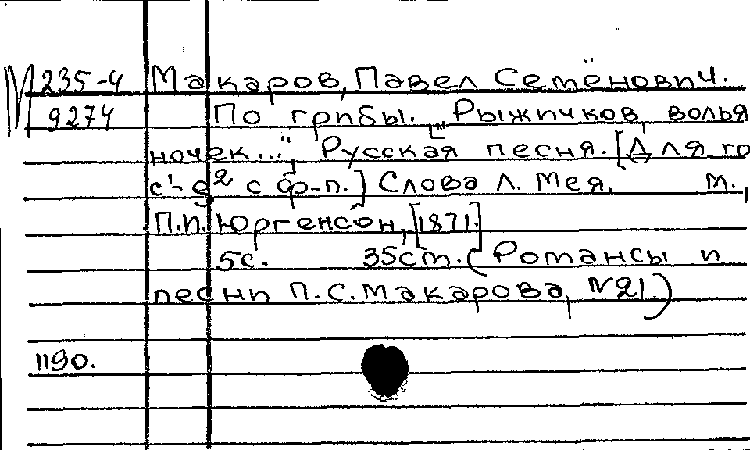 М 235-4 Макаров, Павел Семёнович.
9274 По грибы. „Рыжичков, волвя
ночек...", Русская песня. [Для го
с¹-g² с ф-п.] Слова Л. Мея. М.,
П.И. Юргенсон, [1871.]
5с. 35см. (Романсы и
песни П.С. Макарова, №21.)
1190.